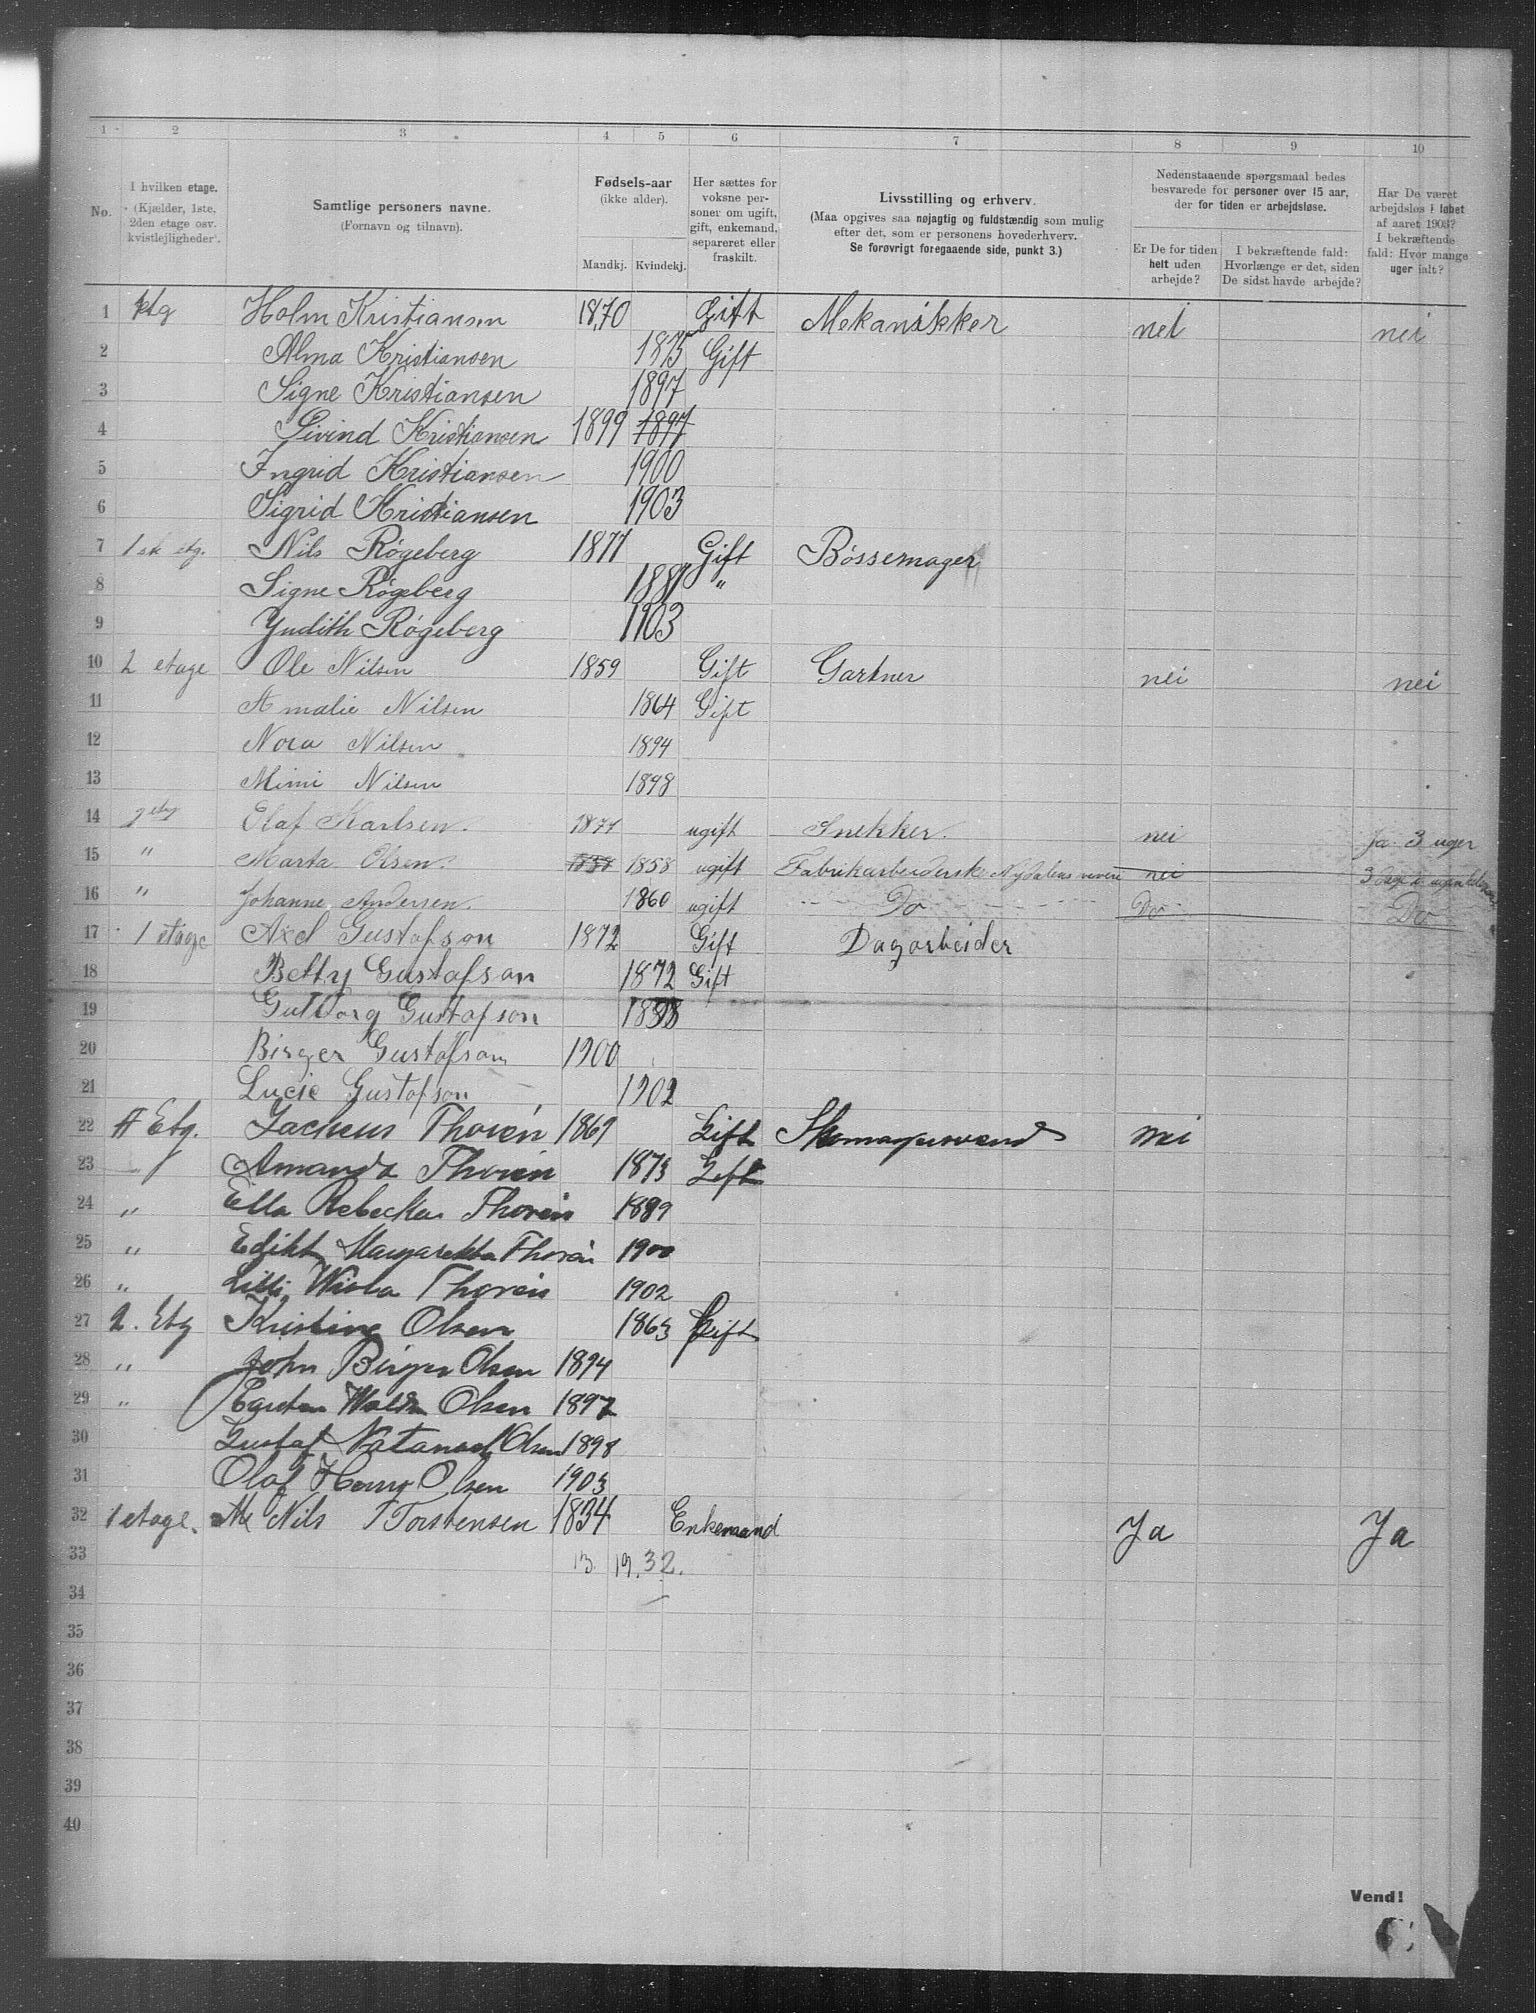 1 2 3 4 5 6 7 8 9 10
No.
I hvilken etage.
(Kjælder, 1ste, 2den etage osv. kvistleiligheder).
Samtlige personers navne.
(Fornavn og tilnavn).
Fødsels-aar
(ikke alder).
Mandkj. Kvindekj.
Her sættes for voksne personer om ugift, gift, enkemand, separeret eller fraskilt.
Livsstilling og erhverv.
(Maa opgives saa nøjagtig og fuldstændig som mulig efter det, som er personens hovederhverv.
Se forøvrigt foregaaende side, punkt 3.)
Nedenstaaende spørgsmaal bedes besvarede for personer over 15 aar, der for tiden er arbejdsløse.
Er De for tiden helt uden arbejde?
I bekræftende fald: Hvorlænge er det, siden De sidst havde arbejde?
Har De været arbejdsløs i løbet af aaret 1903? I bekræftende fald: Hvor mange uger ialt?
1 Holm Kristiansen 1870 Gift Mekanikker nei nei
2 Alma Kristiansen 1875 Gift
3 Signe Kristiansen 1897
4 Eivind Kristiansen 1899 1897
5 Ingrid Kristiansen 1900
6 Sigrid Kristiansen 1903
7 1ste etg. Nils Røgeberg 1877 Gift Bøssemager
8 Signe Røgeberg 1881 "
9 Yudith Røgeberg 1903
10 2 etage Ole Nilsen 1859 Gift Gartner nei nei
11 Amalie Nilsen 1864 Gift
12 Nora Nilsen 1894
13 Mimi Nilsen 1898
14 2 etg Olaf Karlsen. 1877 ugift Snekker. nei Ja 3 uger
15 " Marta Olsen. 1858 ugift Fabrikarbeiderske Nydalens nei
16 " Johanne Andersen. 1860 ugift Do Do Do
17 1 etage Axel Gustafson 1872 Gift Dagarbeider
18 Betty Gustafson 1872 Gift
19 Gutborg Gustafson 1898
20 Birger Gustafson 1900
21 Lucie Gustafson 1902
22 Etg. Zacheus Thorén 1869 Gift Skomagersvend nei
23 Amanda Thorén 1873 Gift
24 " Ella Rebecka Thorén 1899
25 " Edikt Margaretta Thorén 1900
26 " Lilli Wiola Thorén 1902
27 2. Etg Kristine Olsen 1863 Gift
28 " John Birger Olsen 1894
29 " Karsten Olsen 1897
30 Gustaf Natanael Olsen 1898
31 Olaf Henry Olsen 1903
32 1 etage. Nils Torstensen 1834 Enkemand Ja Ja
33 13. 19. 32.
34
35
36
37
38
39
40
Vend!